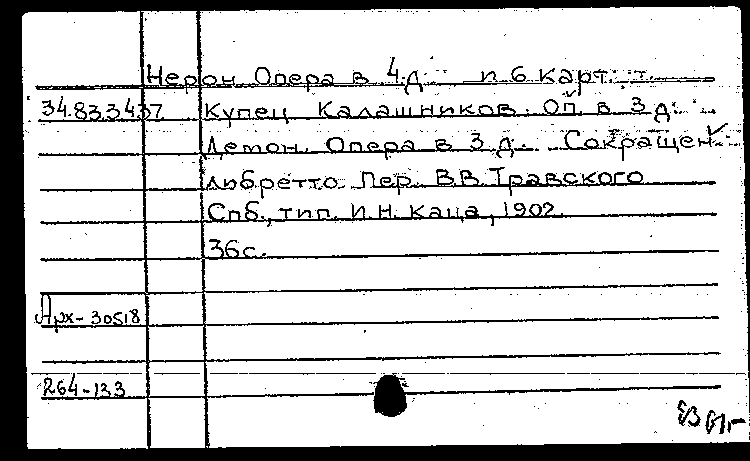 Нерон. Опера в 4 д. и 6 карт.
34.8.33.4.37 Купец Калашников. Оп. в 3 д.
Демон. Опера в 3 д. Сокращен.
либретто. Пер. В.В. Травского
Спб., тип. И.Н. Каца, 1902.
36 с.
Арх-30518
264-133